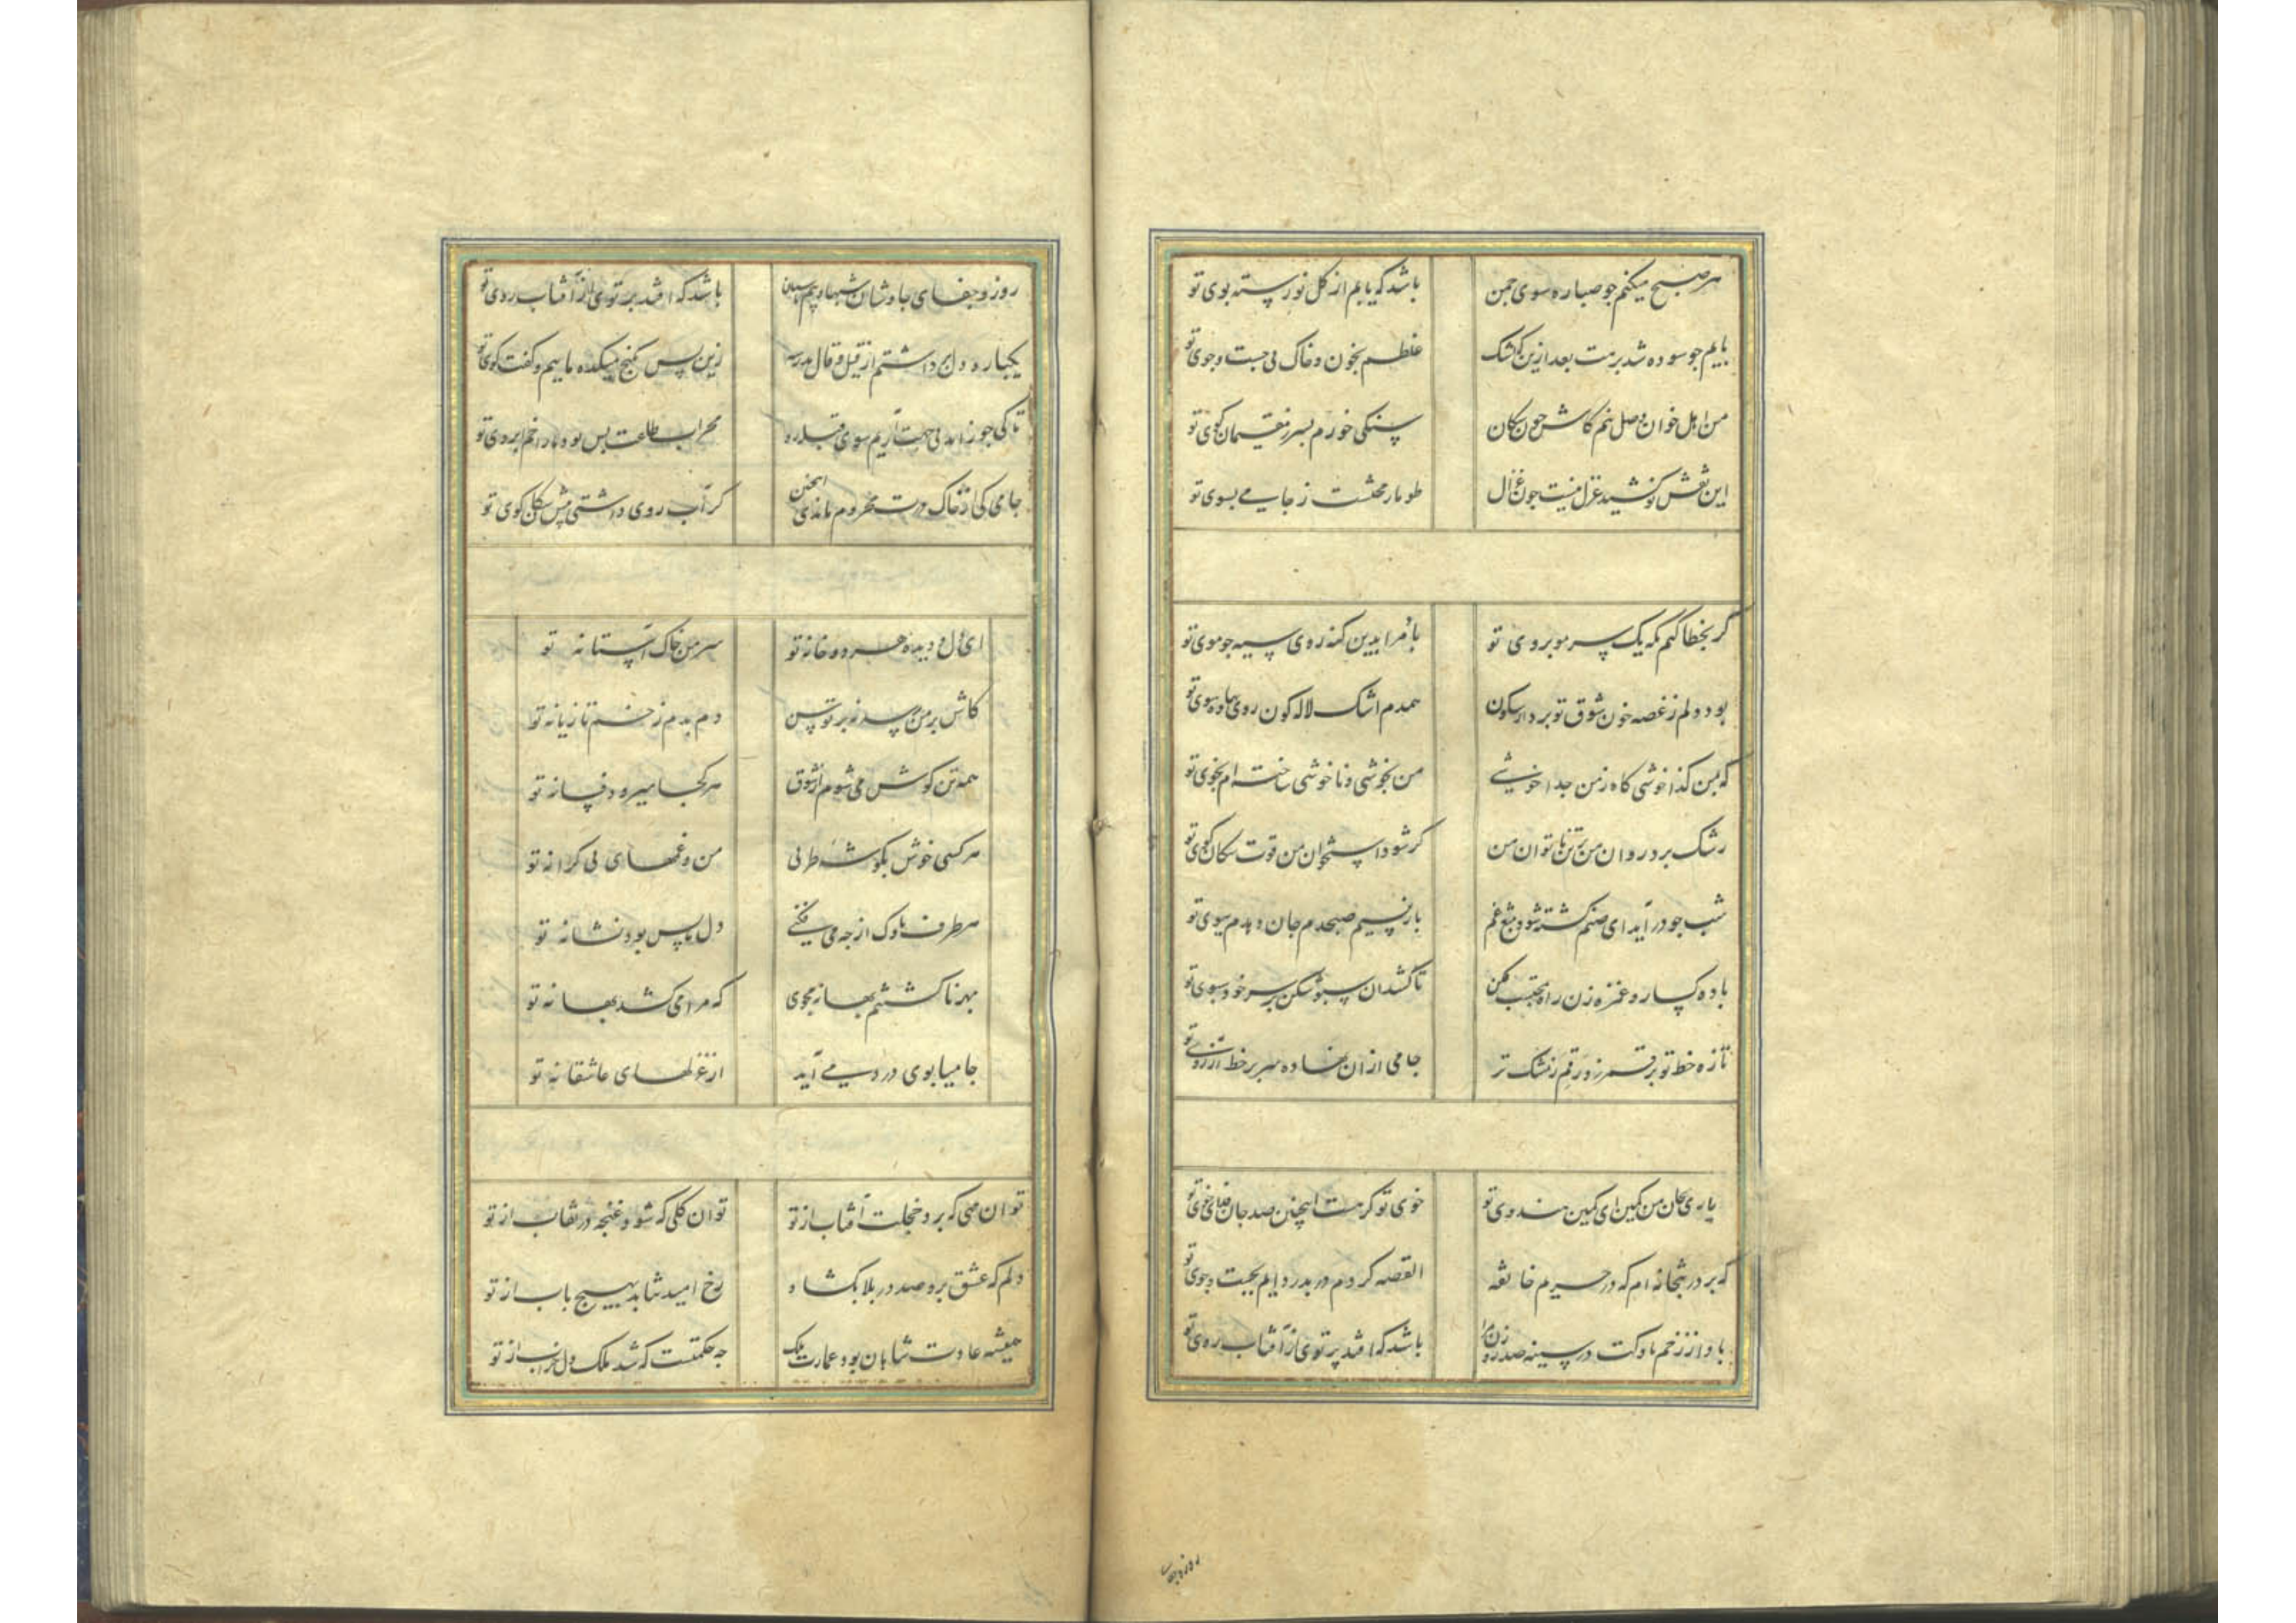 هر صبح میکنم جو صبا ره سوی جمن باشد که یابم از کل نورسته بوی تو
پایم جو سوده شد برهت بعد ازین کو اشک غلطم بخون و خاک پی جست و جوی تو
من اهل خوان وصل نیم کاش جون سکان سنکی خورم بسر ز مقیمان کوی تو
این نقش نو کشید غزل نیست جون غزال طومار محنتست ز جامی بسوی تو
کر بخطا کنم نکه یک سر مو بروی تو باد مرا بدین کنه روی سیه جو موی تو
بود دلم ز غصه خون شوق تو برد ازو سکون همدم اشک لاله کون روی نهاد سوی تو
که بمن کذا خوشی کاه ز من جدا خوشی من بخوشی و ناخوشی ساخته ام بخوی تو
رشک برد روان من بر تن ناتوان من کر شود استخوان من قوت سکان کوی تو
شب جو درآید ای صنم کشته شود بتیغ غم باز نسیم صبحدم جان دهدم ببوی تو
باده کسار و غمزه زن راه محتسب مکن تا کشد آن سبوشکن بر سر خود سبوی تو
تازه خط تو بر قمر زد رقم ز مشک تر جامی از آن نهاده سر بر خط آرزوی تو
یاری بجان من کمین ای کمین هندوی تو خوی تو کر هست اینچنین صد جان فدای خوی تو
که بر در بتخانه ام که در حریم خانقه القصه کردم در بدر دایم بجست و جوی تو
باد از زخم ناوکت در سینه صد روزن مرا باشد که افتد پرتوی از آفتاب روی تو
روز و جفای
روز و جفای جاوشان شبها و بیم پاسبان باشد که افتد پرتوی از آفتاب روی تو
یکباره دل برداشتم از قیل و قال مدرسه زین پس بکنج میکده ماییم و کفت کوی تو
تا کی جو زاهد بی جهت آریم سوی قبله رو محراب طاعت بس بود ما را خم ابروی تو
جامی کی از خاک درت محروم ماندی اینچنین کر آب روی داشتی پیش سکان کوی تو
ای دل و دیده هر دو خانه تو سر من خاک آستانه تو
کاش بر من رسد نه بر توسن دم بدم زخم تازیانه تو
همه تن کوش می شوم از شوق هر کجا میرود فسانه تو
هر کسی خوش بکوشه طربی من و غمهای بی کرانه تو
هر طرف ناوک از جه می فکنی دل ما بس بود نشانه تو
بهر ناکشتنم بهانه مجوی که مرا می کشد بهانه تو
جامیا بوی درد می آید از غزلهای عاشقانه تو
تو آن مهی که برد خجلت آفتاب از تو تو آن کلی که شود غنجه در نقاب از تو
دلم که عشق برو صد در بلا بکشاد رخ امید نتابد بهیچ باب از تو
همیشه عادت شاهان بود عمارت ملک جه حکمتست که شد ملک دل خراب از تو